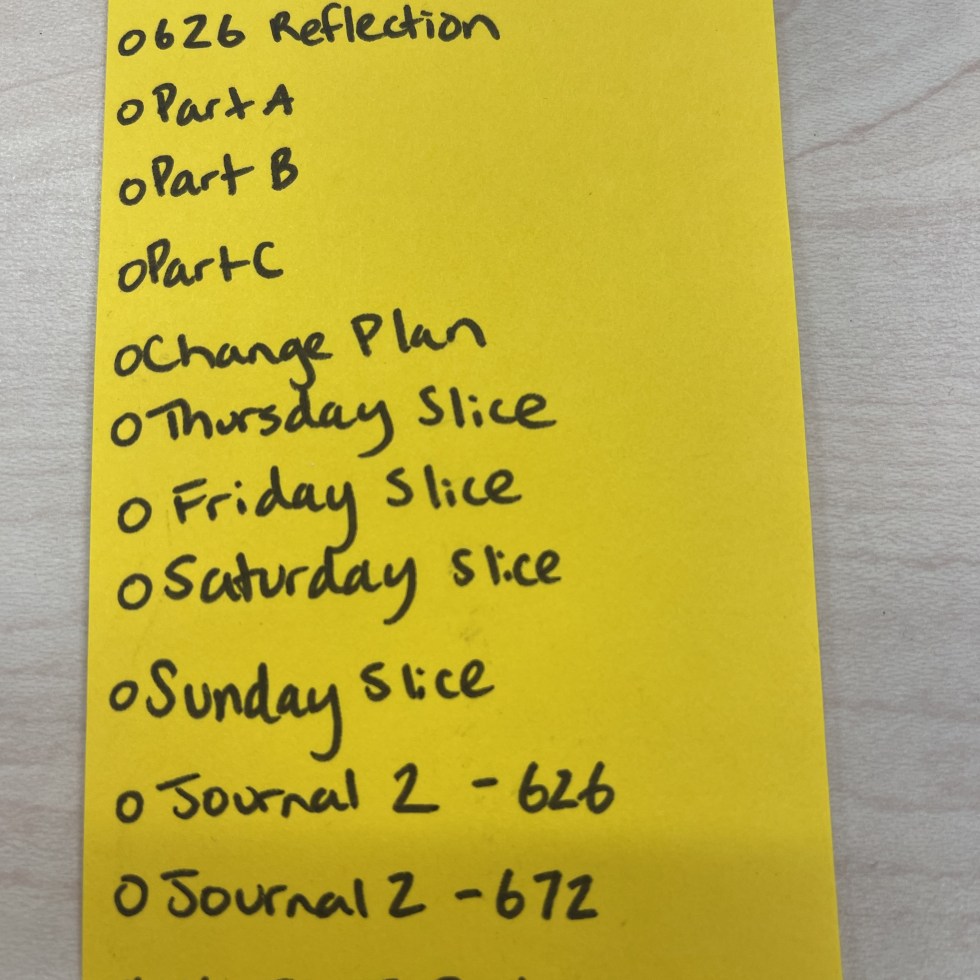 626 Reflection
Part A
Part B
Part C
Change Plan
Thursday Slice
Friday Slice
Saturday Slice
Sunday Slice
Journal 2 - 626
Journal 2 - 672